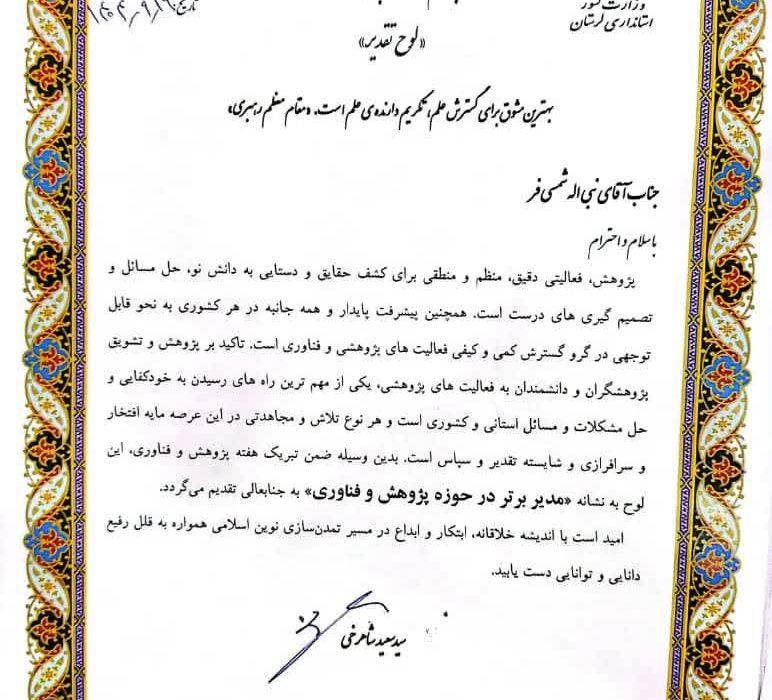 وزارت کشور
استانداری لرستان
تاریخ:
«لوح تقدیر»
بهترین مشوق برای گسترش علم، تکریم دارنده ی علم است. «مقام معظم رهبری»
جناب آقای نبی اله شمسی فر
با سلام و احترام
پژوهش، فعالیتی دقیق، منظم و منطقی برای کشف حقایق و دستایی به دانش نو، حل مسائل و
تصمیم گیری های درست است. همچنین پیشرفت پایدار و همه جانبه در هر کشوری به نحو قابل
توجهی در گرو گسترش کمی و کیفی فعالیت های پژوهشی و فناوری است. تاکید بر پژوهش و تشویق
پژوهشگران و دانشمندان به فعالیت های پژوهشی، یکی از مهم ترین راه های رسیدن به خودکفایی و
حل مشکلات و مسائل استانی و کشوری است و هر نوع تلاش و مجاهدتی در این عرصه مایه افتخار
و سرافرازی و شایسته تقدیر و سپاس است. بدین وسیله ضمن تبریک هفته پژوهش و فناوری، این
لوح به نشانه «مدیر برتر در حوزه پژوهش و فناوری» به جنابعالی تقدیم می‌گردد.
امید است با اندیشه خلاقانه، ابتکار و ابداع در مسیر تمدن‌سازی نوین اسلامی همواره به قلل رفیع
دانایی و توانایی دست یابید.
سید سعید شاهرخی